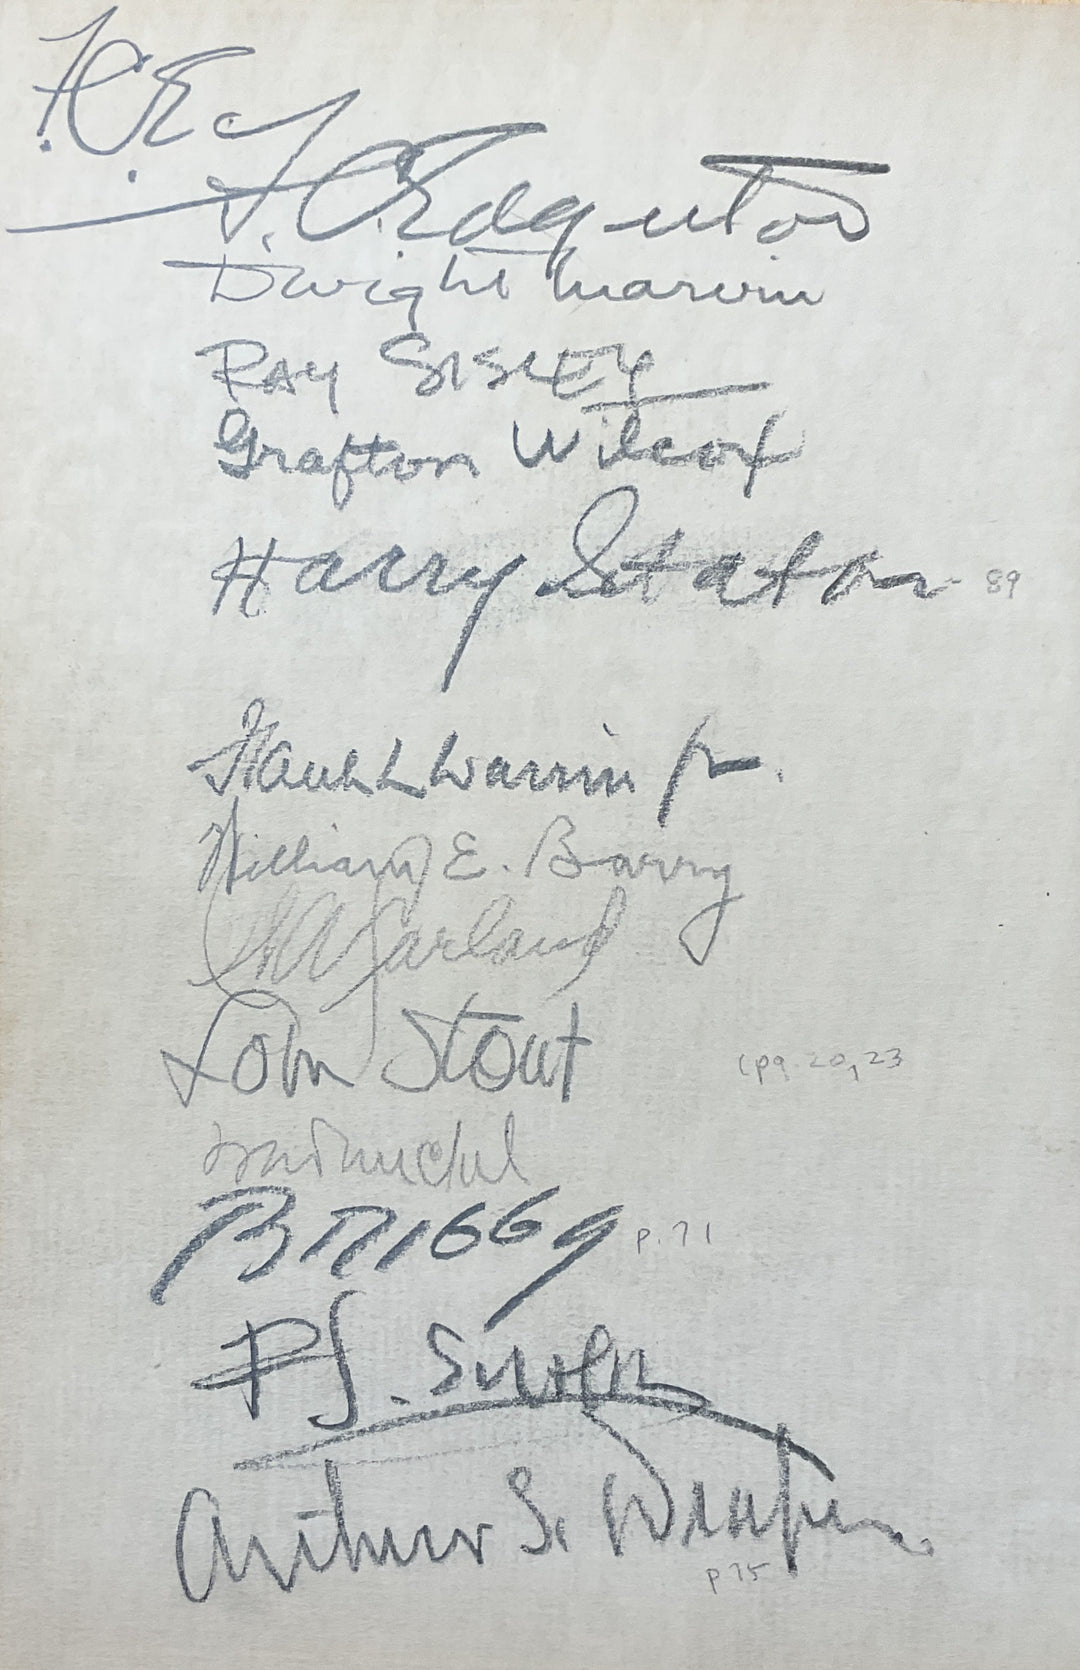 F. C. Edgerton
Dwight Marvin
RAY SISLEY
Grafton Wilcox
Harry Staton 89
Frank L Warrin Jr.
William E. Barry
Garland
John Stout (pg. 20, 23
BRIGGS p. 71
P. J.
Arthur S. Draper.
p 75